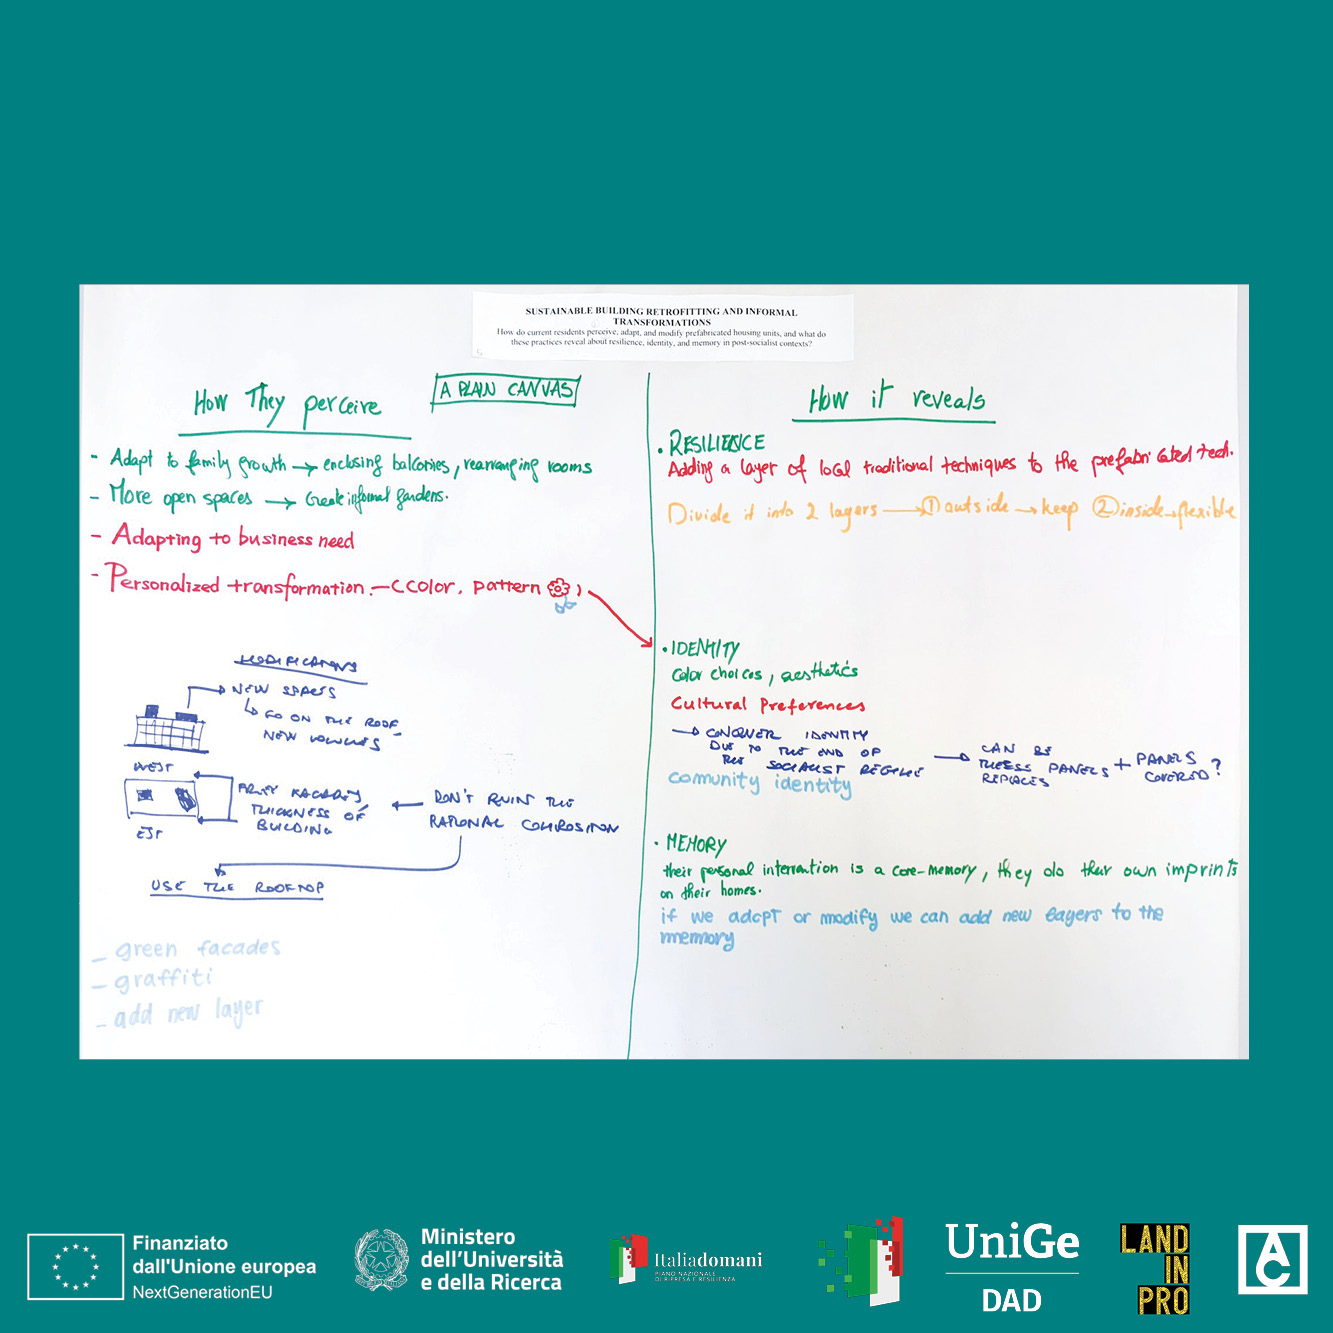 SUSTAINABLE BUILDING RETROFITTING AND INFORMAL
TRANSFORMATIONS
How do current residents perceive, adapt, and modify prefabricated housing units, and what do
these practices reveal about resilience, identity, and memory in post-socialist contexts?
How They perceive
A PLAIN CANVAS
- Adapt to family growth → enclosing balconies, rearranging rooms
- More open spaces → Create informal gardens.
- Adapting to business need
- Personalized transformation - (color, pattern )
MODIFICATIONS
NEW SPACES
GO ON THE ROOF,
NEW VOLUMES
WEST
EST
THICKNESS OF
BUILDING
← DON'T RUIN THE
RATIONAL COMPOSITION
USE THE ROOFTOP
- green facades
- graffiti
- add new layer
How it reveals
• RESILIENCE
Adding a layer of local traditional techniques to the prefabricated tech.
Divide it into 2 layers → ① outside → keep ② inside → flexible
• IDENTITY
Color choices, aesthetics
Cultural Preferences
→ CONQUER IDENTITY
DUE TO THE END OF
THE SOCIALIST REGIME
→ CAN BE
THESE PANELS
REPLACES
+ PANELS
COVERED?
comunity identity
• MEMORY
their personal intervention is a core-memory, they do their own imprints
on their homes.
if we adopt or modify we can add new layers to the
memmory
Finanziato
dall'Unione europea
NextGenerationEU
Ministero
dell'Università
e della Ricerca
Italiadomani
PIANO NAZIONALE
DI RIPRESA E RESILIENZA
UniGe
DAD
LAND
IN
PRO
AC